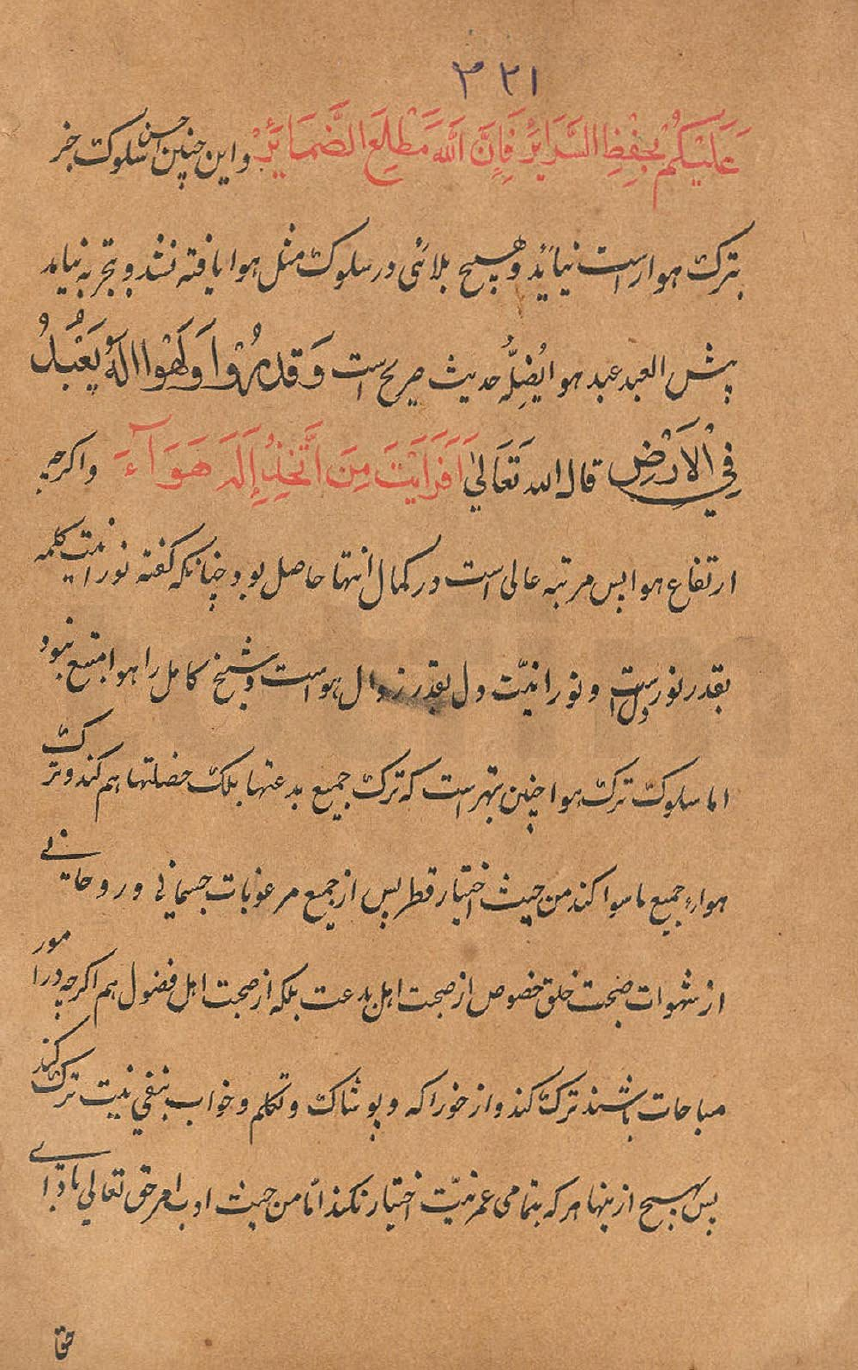 ٣٢١
عَلَيْكُمْ بِحِفْظِ السَّرَايِرْ فَاِنَّ اللّٰهَ مَطْلِعَ الضَّمَايَرْ واین چنین احسن سلوکت جز
بترک هوا راست نیاید و هیچ بلائی در سلوک مثل هوا یافته نشد و تجربه نیاید
پش العبد عبد هوا یُضِلُّه حدیث صریح است وَقد
فِي الْاَرَضِ قال الله تَعَالیٰ اَفَرَاَيْتَ مِنَ اتَّخَذِ اِلَهَ هَوَآءَ واکرچه
ارتفاع هوا بس مرتبه عالی است در کمال انتها حاصل بود چنانکه کفته نورانیت کلمه
بقدر نور دلست و نورانیّت دل بقدر زوال هواست و شیخ کامل را هوا متبع نبود
اما سلوک ترک هوا چنین بهتر است که ترک جمیع بدعتها بلک خصلتها هم کند وترک
هواء جمیع ماسوا کند من حیث اختیار قطر پس از جمیع مرغوبات جسمانی و روحانے
از شهوات صحبت خلق خصوص از صحبت اهل بدعت بلکه از صحبت اهل فضول هم اکرچه در امور
مباحات باشند ترک کند واز خوراکه و پوشاک وتکلم وخواب بنفی نیت ترک کند
پس بهیچ از ینها هر که بتمامی عمر نیّت اختیار نکند امّا من حیث ادب امر حق تعالی
حقا